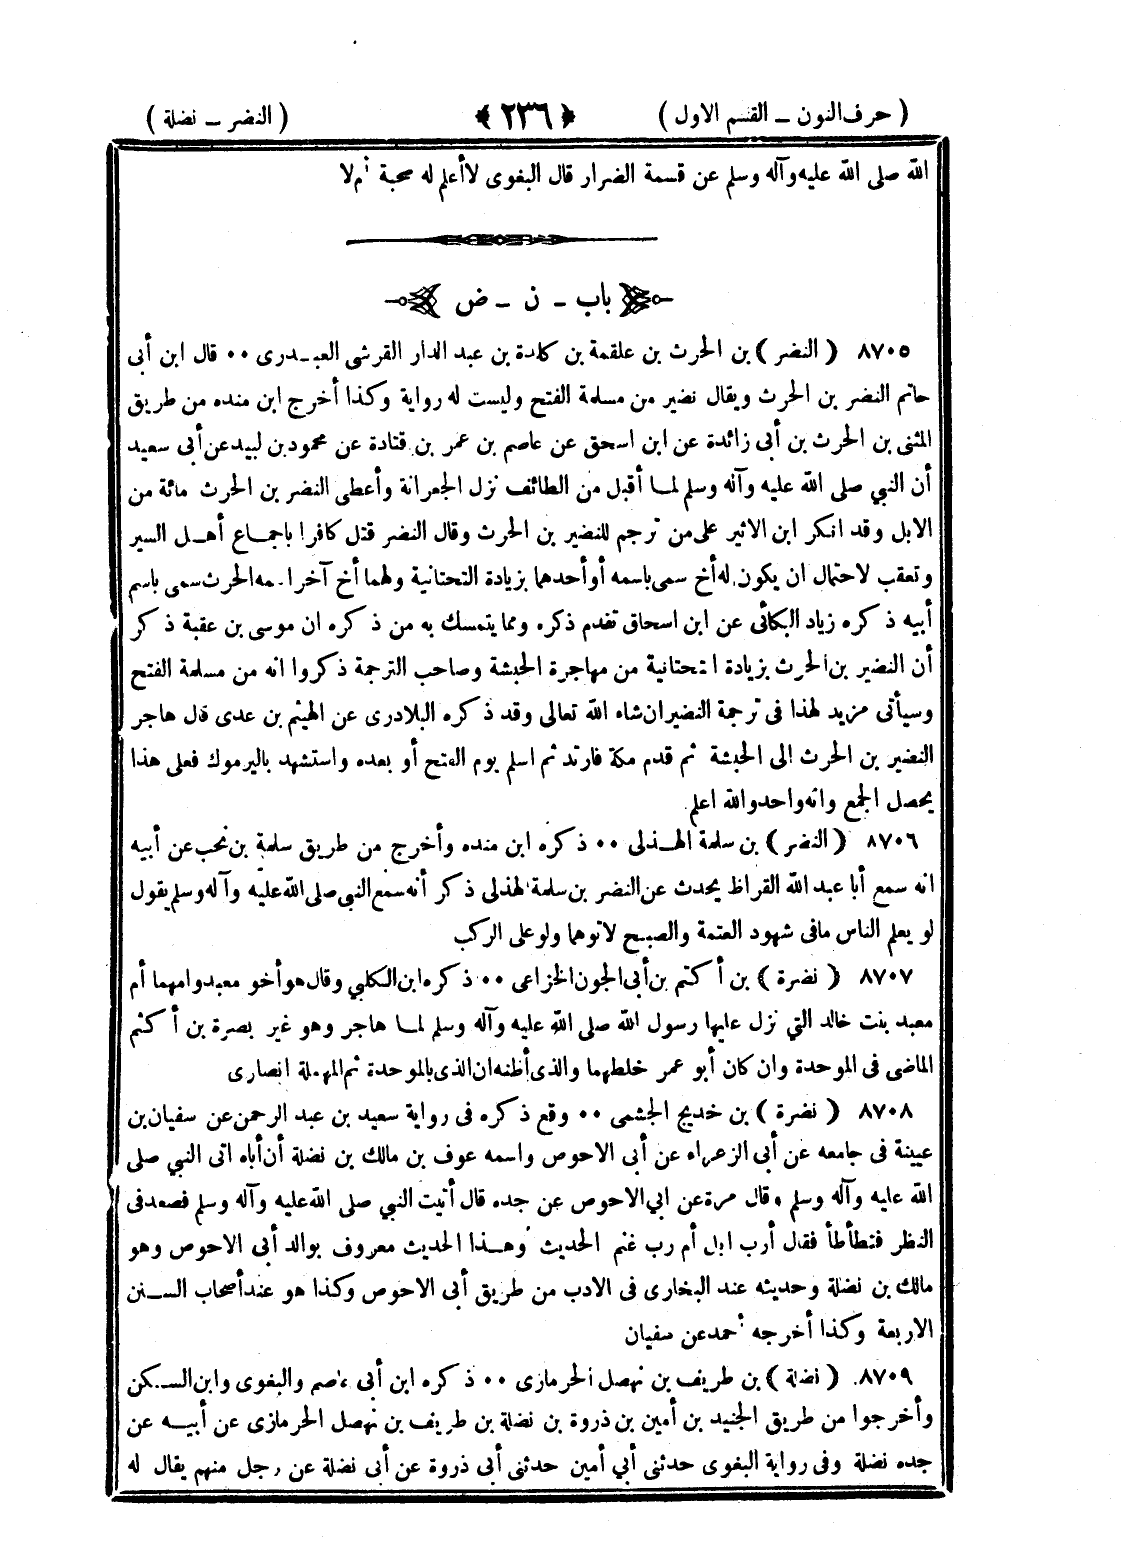 ( حرف النون ــ القسم الاول ) ﴿ ٢٣٦ ﴾ ( النضر ــ نضلة )
الله صلى الله عليه وآله وسلم عن قسمة الضرار قال البغوى لا أعلم له صحبة أم لا
باب ــ ن ــ ض
٨٧٠٥ ( النضر ) بن الحرث بن علقمة بن كلدة بن عبد الدار القرشى العبدرى ٠٠ قال ابن أبى
حاتم النضر بن الحرث ويقال نضير من مسلمة الفتح وليست له رواية وكذا أخرج ابن منده من طريق
المثنى بن الحرث بن أبى زائدة عن ابن اسحق عن عاصم بن عمر بن قتادة عن محمود بن لبيد عن أبى سعيد
أن النبي صلى الله عليه وآله وسلم لما أقبل من الطائف نزل الجعرانة وأعطى النضر بن الحرث مائة من
الابل وقد انكر ابن الاثير على من ترجم للنضير بن الحرث وقال النضر قتل كافرا باجماع أهل السير
وتعقب لاحتمال ان يكون له أخ سمى باسمه أو أحدهما بزيادة التحتانية ولهما أخ آخر اسمه الحرث سمى باسم
أبيه ذكره زياد البكائى عن ابن اسحاق تقدم ذكره ومما يتمسك به من ذكره ان موسى بن عقبة ذكر
أن النضير بن الحرث بزيادة التحتانية من مهاجرة الحبشة وصاحب الترجمة ذكروا انه من مسلمة الفتح
وسيأتى مزيد لهذا فى ترجمة النضير ان شاء الله تعالى وقد ذكره البلادرى عن الهيثم بن عدى قال هاجر
النضير بن الحرث الى الحبشة ثم قدم مكة فارتد ثم اسلم يوم الفتح أو بعده واستشهد باليرموك فعلى هذا
يحصل الجمع وانه واحد والله اعلم
٨٧٠٦ ( النضر ) بن سلمة الهذلى ٠٠ ذكره ابن منده وأخرج من طريق سلمة بن نحب عن أبيه
انه سمع أبا عبد الله القراظ يحدث عن النضر بن سلمة الهذلى ذكر أنه سمع النبي صلى الله عليه وآله وسلم يقول
لو يعلم الناس مافى شهود العتمة والصبح لاتوهما ولو على الركب
٨٧٠٧ ( نضرة ) بن أكتم بن أبى الجون الخزاعى ٠٠ ذكره ابن الكلبي وقال هو أخو معبد وامهما أم
معبد بنت خالد التي نزل عليها رسول الله صلى الله عليه وآله وسلم لما هاجر وهو غير بصرة بن أكثم
الماضى فى الموحدة وان كان أبو عمر خلطهما والذى أظنه ان الذى بالموحدة ثم المهملة انصارى
٨٧٠٨ ( نضرة ) بن خديج الجشمى ٠٠ وقع ذكره فى رواية سعيد بن عبد الرحمن عن سفيان بن
عيينة فى جامعه عن أبى الزعراء عن أبى الاحوص واسمه عوف بن مالك بن نضلة أن أباه اتى النبي صلى
الله عليه وآله وسلم وقال مرة عن ابي الاحوص عن جده قال أتيت النبي صلى الله عليه وآله وسلم فصعد فى
النظر فتطأطأ فقال أرب ابل أم رب غنم الحديث وهذا الحديث معروف بوالد أبى الاحوص وهو
مالك بن نضلة وحديثه عند البخارى فى الادب من طريق أبى الاحوص وكذا هو عند أصحاب السنن
الاربعة وكذا أخرجه أحمد عن سفيان
٨٧٠٩ ( نضلة ) بن طريف بن نهصل الحرمازى ٠٠ ذكره ابن أبى عاصم والبغوى وابن السكن
وأخرجوا من طريق الجنيد بن أمين بن ذروة بن نضلة بن طريف بن نهصل الحرمازى عن أبيه عن
جده نضلة وفى رواية البغوى حدثنى أبي أمين حدثنى أبى ذروة عن أبى نضلة عن رجل منهم يقال له